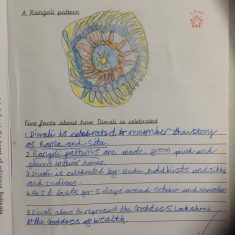 A Rangoli pattern
Five facts about how Diwali is celebrated
1. Diwali is celebrated to remember the story
of Rama and Sita.
2. Rangoli patterns are made from and
flowers in their homes.
3. Diwali is celebrated by Hindu, Buddhists and sikhs
and Indians.
4. It lasts for 5 days around October and November
5. Diwali to represent the Goddess Lakshmi
the Goddess of wealth.